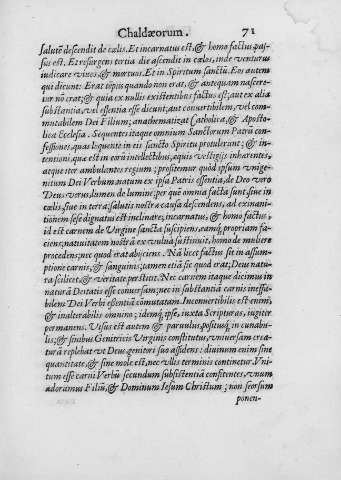 Chaldæorum. 71
salutē descendit de cœlis. Et incarnatus est, & homo factus, pas-
sus est. Et resurgens tertia die ascendit in cœlos, inde venturus
iudicare viuos, & mortuos. Et in Spiritum sanctū. Eos autem
qui dicunt: Erat tēpus quando non erat, & antequam nascere-
tur nō erat; & quia ex nullis existentibus factus est, aut ex alia
substantia, vel essentia esse dicunt, aut conuertibilem, vel com-
mutabilem Dei Filium; anathematizat Catholica, & Aposto-
lica Ecclesia. Sequentes itaque omnium Sanctorum Patrū con-
fessiones, quas loquente in eis sancto Spiritu protulerunt; & in-
tentioni, quæ est in eorū intellectibus, eoruq; vestigijs inhærentes,
atque iter ambulantes regium; profitemur quòd ipsum vnige-
nitum Dei Verbum natum ex ipsa Patris essentia, de Deo vero
Deus verus, lumen de lumine; per quē omnia facta sunt, siue in
cœlis, siue in terra; salutis nostræ causa descendens, ad exinani-
tionem sese dignatus est inclinare, incarnatus, & homo factus,
id est carnem de Virgine sancta suscipiens, eamq; propriam fa-
ciens; natuitatem nostrā ex vuluā sustinuit, homo de muliere
procedens; nec quod erat abijciens. Nā licet factus sit in assum-
ptione carnis, & sanguinis; tamen etiā sic quod erat; Deus natu-
ra scilicet, & veritate perstitit. Nec carnem itaque dicimus in
naturā Deitatis esse conuersam; nec in substantiā carnis ineffa-
bilem Dei Verbi essentiā cōmutatam. Inconuertibilis est enim,
& inalterabilis omnino; idemq; ipse, iuxta Scripturas, iugiter
permanens. Visus est autem & paruulus, positusq; in cunabu-
lis; & sinibus Genitricis Virginis constitutus, vniuersam crea-
turā replebat vt Deus, genitori suo assidens: diuinum enim sine
quantitate, & sine mole est, nec vllis terminis continetur. Vni-
tum esse carni Verbū secundum subsistentiā confitentes, vnum
adoramus Filiū, & Dominum Iesum Christum; non seorsum
ponen-